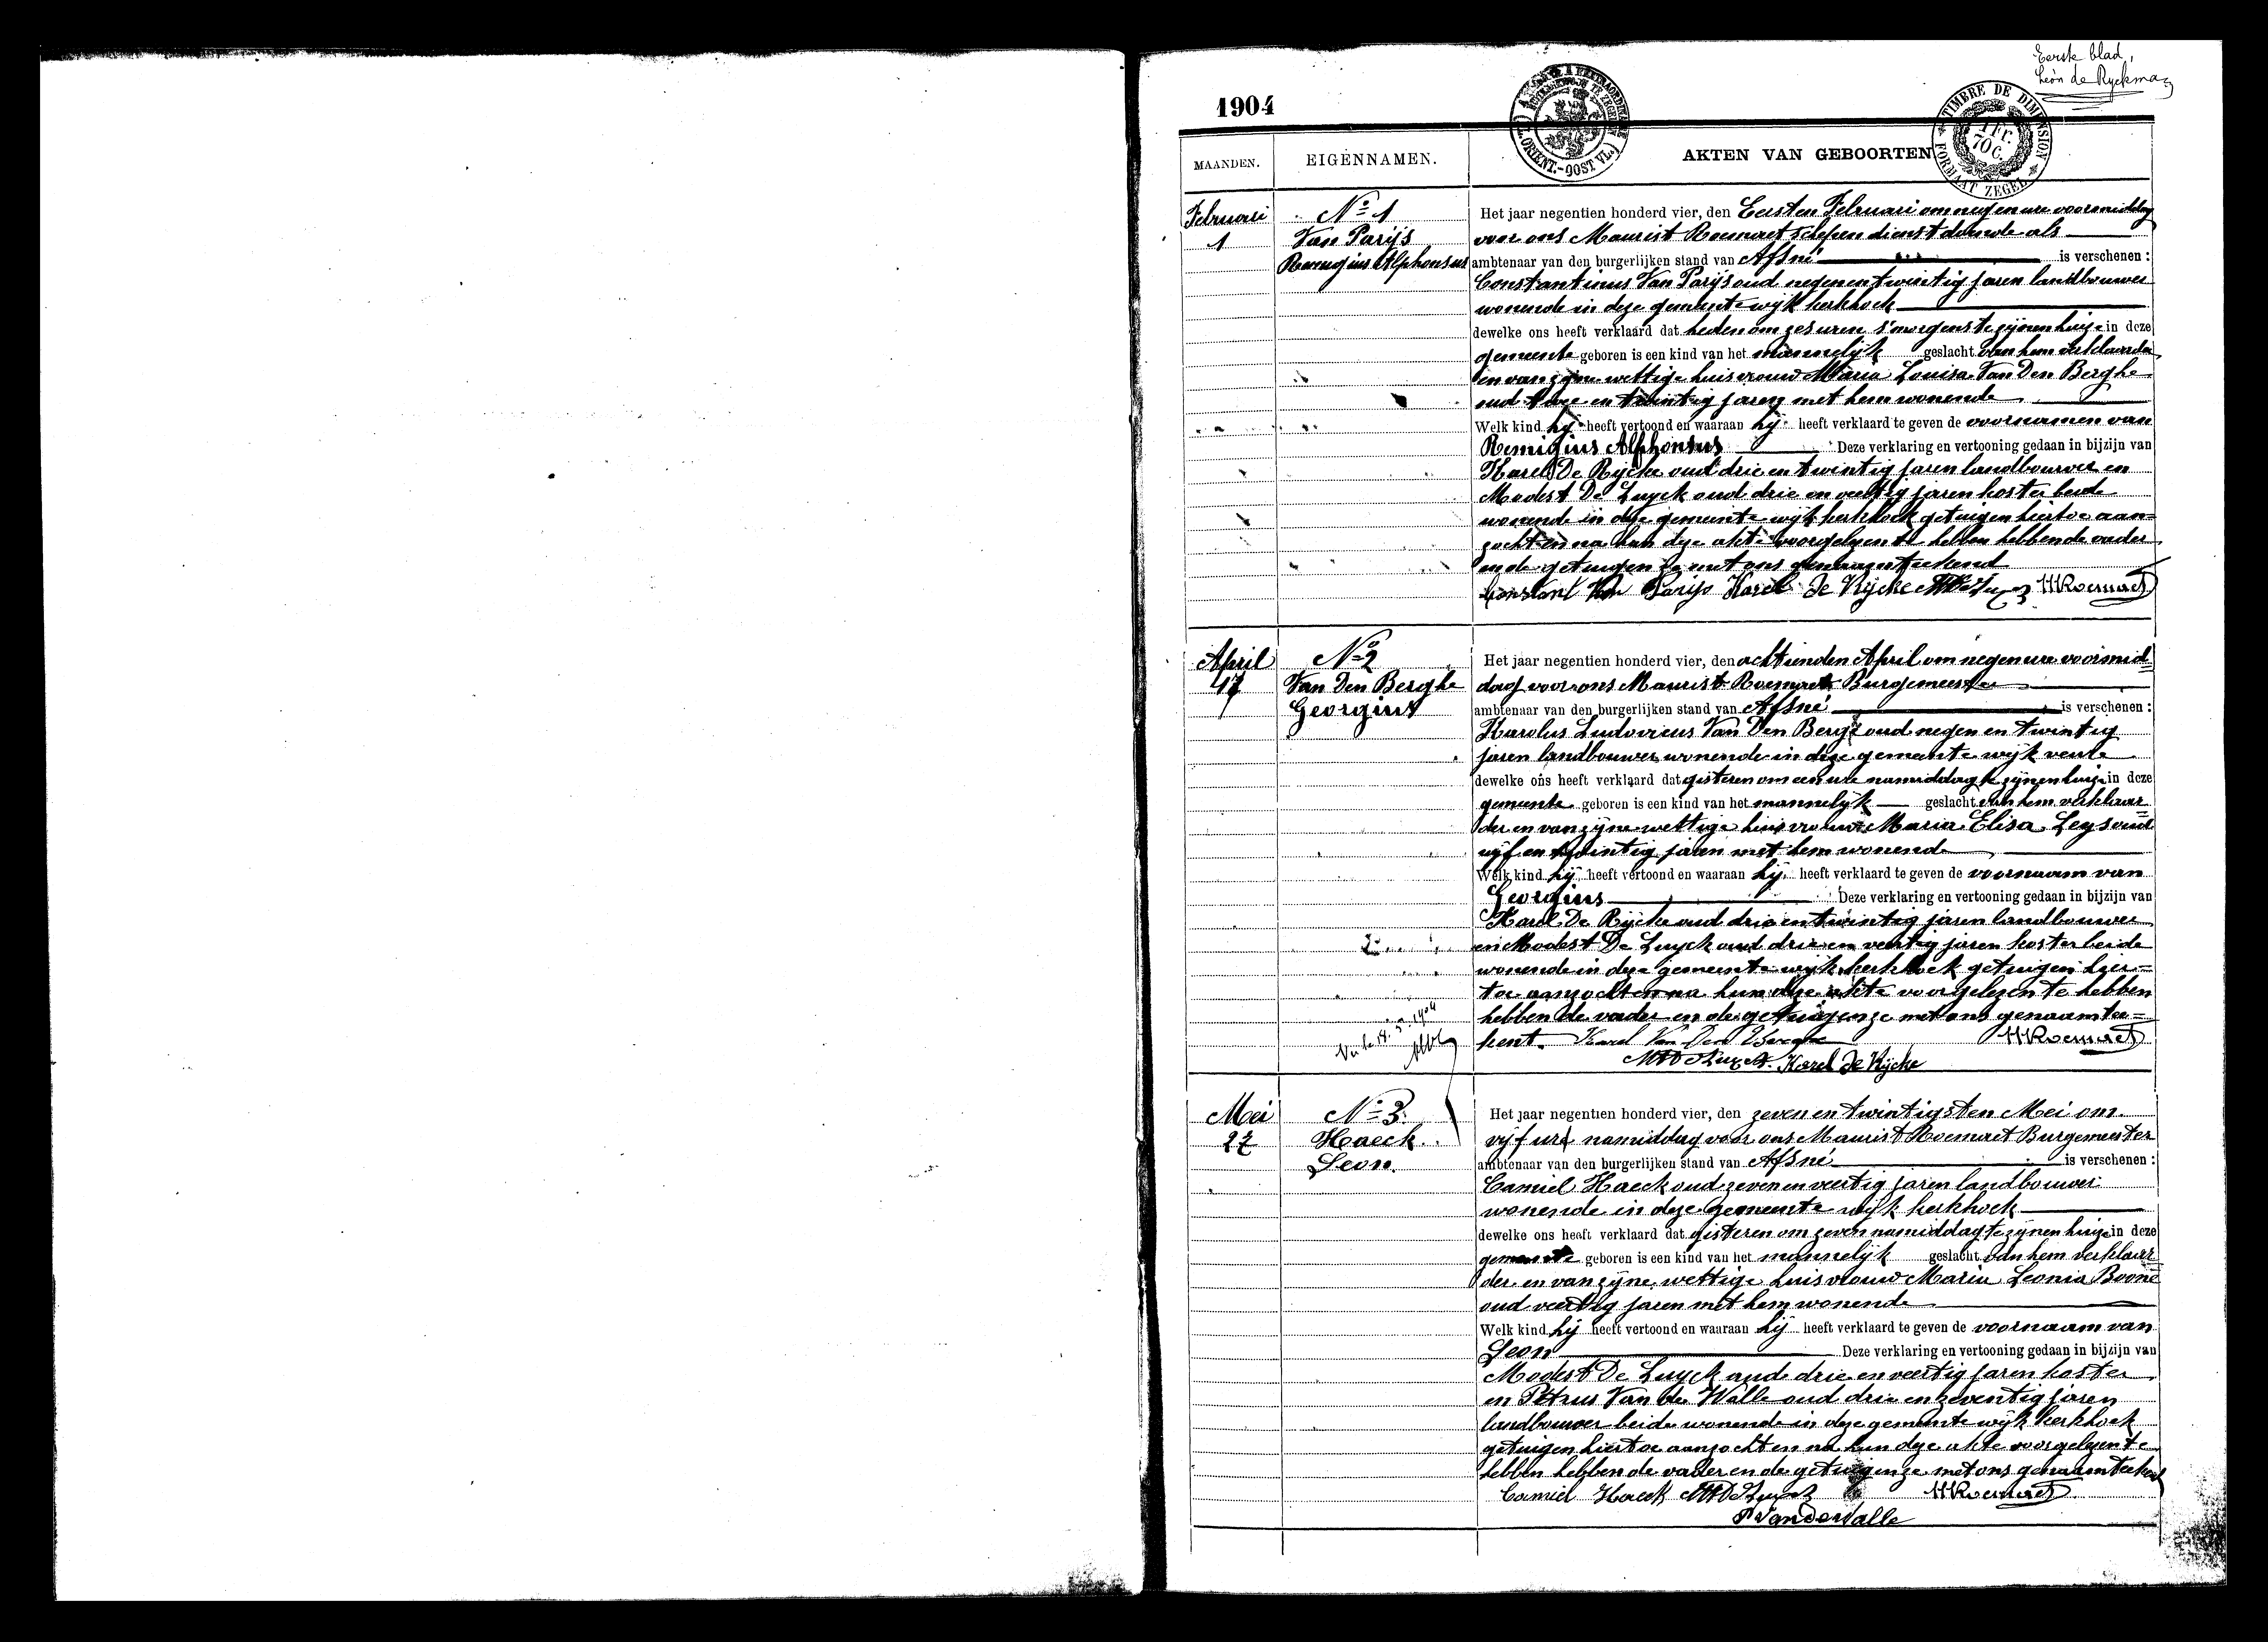 Eerste blad,
Léon de Ryckman
1904
TIMBRE DE DIMENSION
1 Fr.
70 C.
FORMAAT ZEGEL
ORIENT.-OOST VL.
MAANDEN. EIGENNAMEN. AKTEN VAN GEBOORTEN
Februari
1
No 1
Van Parijs
Remigius Alphonsus
Het jaar negentien honderd vier, den Eersten Februari om negen ure voormiddag
voor ons Maurist Roemaet schepen dienstdoende als
ambtenaar van den burgerlijken stand van Afsné is verschenen :
Constantinus Van Parijs oud negenentwintig jaren landbouwer
wonende in deze gemeente wijk kerkhoek
dewelke ons heeft verklaard dat heden om zes uren s'morgens te zijnen huize in deze
gemeente geboren is een kind van het mannelijk geslacht van hem verklaarder
en van zijne wettige huisvrouw Maria Louisa Van Den Berghe
oud twee en twintig jaren met hem wonende
Welk kind hij heeft vertoond en waaraan hij heeft verklaard te geven de voornamen van
Remigius Alphonsus Deze verklaring en vertooning gedaan in bijzijn van
Karel De Rijcke oud drie en twintig jaren landbouwer en
Modest De Luyck oud drie en veertig jaren koster beide
wonend in deze gemeente wijk kerkhoek getuigen hiertoe aan=
zocht en na hun deze akte voorgelezen te hebben hebben de vader
en de getuigen ze met ons genaamteekend
Constant Van Parijs Karel De Rijcke MRoemaet
April
17
No 2
Van Den Berghe
Georgius
Het jaar negentien honderd vier, den achtienden April om negen ure voormid=
dag voor ons Maurist Roemaet Burgemeester
ambtenaar van den burgerlijken stand van Afsné is verschenen :
Karolus Ludovicus Van Den Berghe oud negen en twintig
jaren landbouwer wonende in deze gemeente wijk
dewelke ons heeft verklaard dat gisteren om een ure namiddag te zijnen huize in deze
gemeente geboren is een kind van het mannelijk geslacht van hem verklaar=
der en van zijne wettige huisvrouw Maria Elisa Leys oud
vijf en twintig jaren met hem wonende
Welk kind hij heeft vertoond en waaraan hij heeft verklaard te geven de voornaam van
Georgius Deze verklaring en vertooning gedaan in bijzijn van
Karel De Rijcke oud drie en twintig jaren landbouwer
en Modest De Luyck oud drie en veertig jaren koster beide
wonende in deze gemeente wijk kerkhoek getuigen hier=
toe aanzocht en na hun deze akte voorgelezen te hebben
hebben de vader en de getuigen ze met ons genaamtee=
kent. Karel Van Den Berghe MRoemaet
Karel De Rijcke
Mei
27
No 3.
Haeck
Leon.
Het jaar negentien honderd vier, den zeven en twintigsten Mei om
vijf ure namiddag voor ons Maurist Roemaet Burgemeester
ambtenaar van den burgerlijken stand van Afsné is verschenen :
Camiel Haeck oud zeven en veertig jaren landbouwer
wonende in deze gemeente wijk kerkhoek
dewelke ons heeft verklaard dat gisteren om zeven namiddag te zijnen huize in deze
gemeente geboren is een kind van het mannelijk geslacht van hem verklaar=
der en van zijne wettige huisvrouw Maria Leonia Boone
oud veertig jaren met hem wonende
Welk kind hij heeft vertoond en waaraan hij heeft verklaard te geven de voornaam van
Leon Deze verklaring en vertooning gedaan in bijzijn van
Modest De Luyck oude drie en veertig jaren koster
en Petrus Van de Walle oud drie en zeventig jaren
landbouwer beide wonende in deze gemeente wijk kerkhoek
getuigen hiertoe aanzocht en na hun deze akte voorgelezen te
hebben hebben de vader en de getuigen ze met ons genaamteekend
Camiel Haeck MRoemaet
P Vandewalle